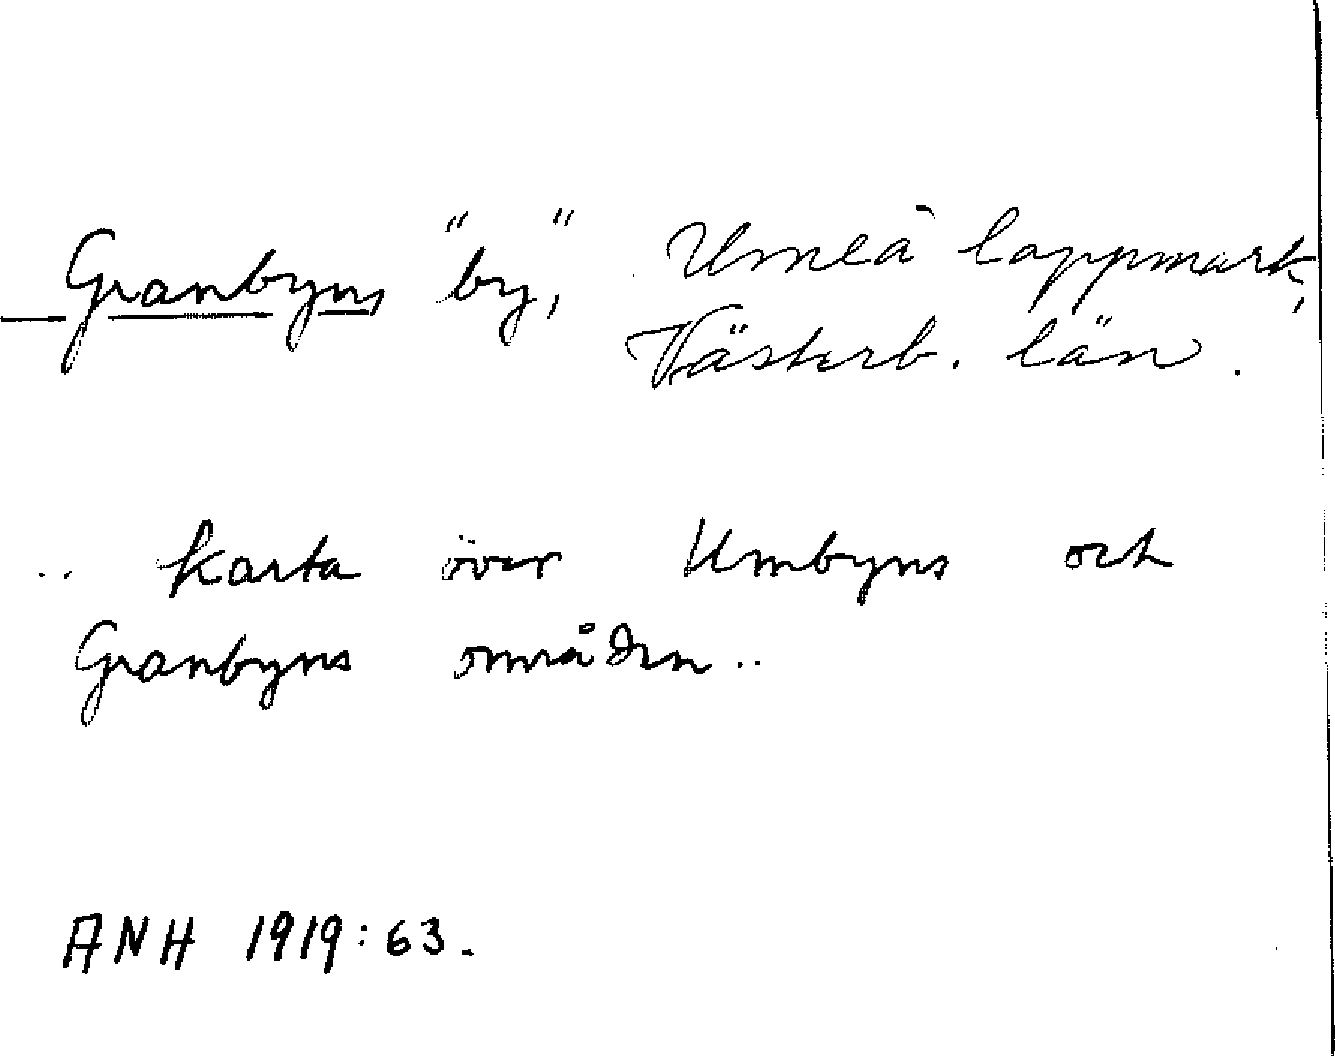 Granbyns "by", Umeå lappmark,
Västerb. län.
.. karta över Umbyns och
Granbyns områden ..
ANH 1919:63.